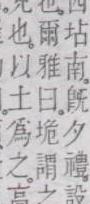 坫南。既夕禮。設
也。爾雅曰。垝謂之
也。以土爲之。高